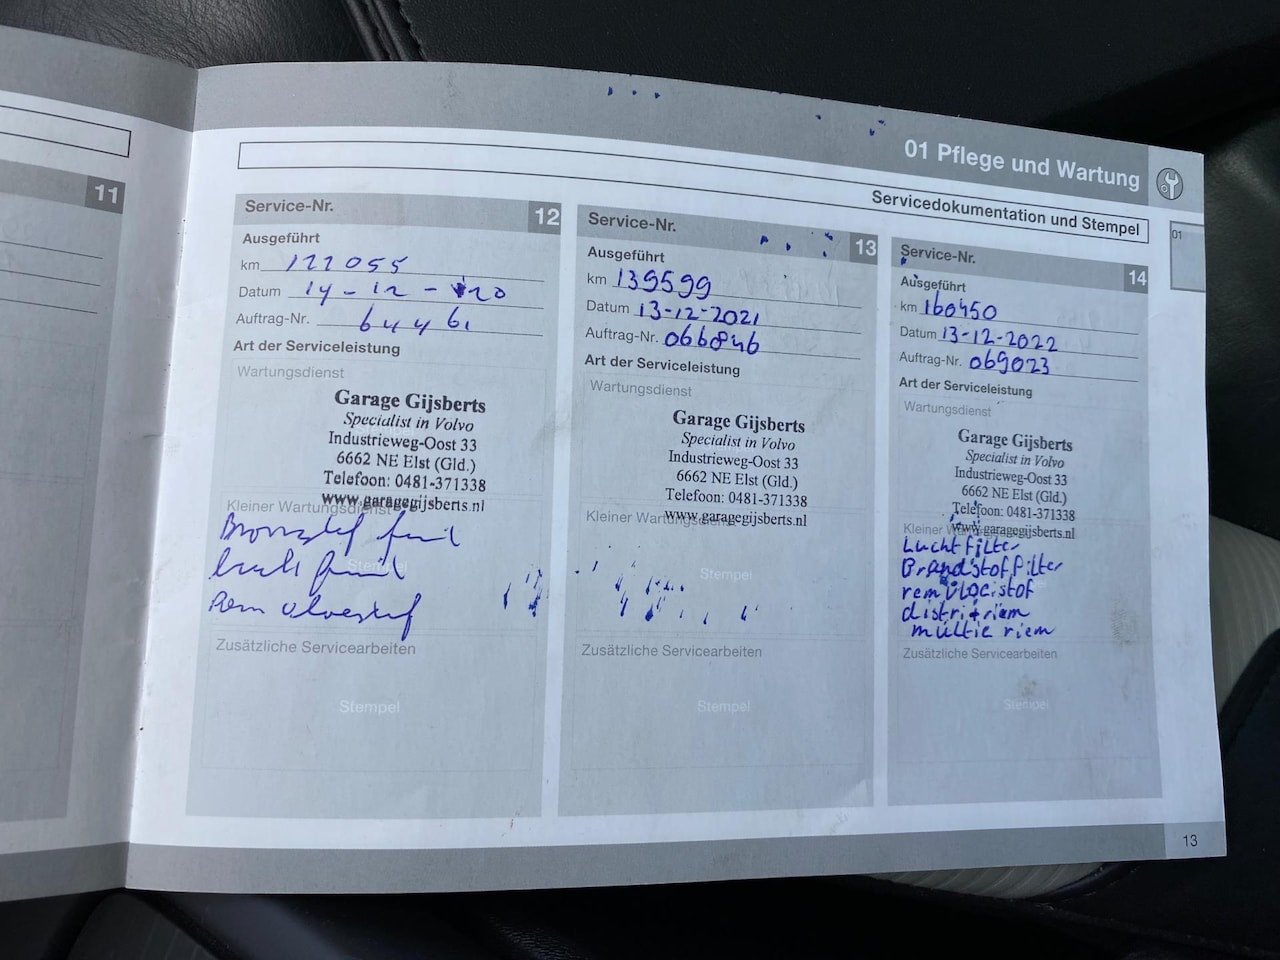 01 Pflege und Wartung
Servicedokumentation und Stempel
01
11
Service-Nr. 12
Ausgeführt
km 122055
Datum 14-12-20
Auftrag-Nr. 64461
Art der Serviceleistung
Wartungsdienst
Garage Gijsberts
Specialist in Volvo
Industrieweg-Oost 33
6662 NE Elst (Gld.)
Telefoon: 0481-371338
www.garagegijsberts.nl
Kleiner Wartungsdienst
Stempel
Rem vloeistof
Zusätzliche Servicearbeiten
Stempel
Service-Nr. 13
Ausgeführt
km 139599
Datum 13-12-2021
Auftrag-Nr. 066846
Art der Serviceleistung
Wartungsdienst
Garage Gijsberts
Specialist in Volvo
Industrieweg-Oost 33
6662 NE Elst (Gld.)
Telefoon: 0481-371338
www.garagegijsberts.nl
Kleiner Wartungsdienst
Stempel
Zusätzliche Servicearbeiten
Stempel
Service-Nr. 14
Ausgeführt
km 160450
Datum 13-12-2022
Auftrag-Nr. 069023
Art der Serviceleistung
Wartungsdienst
Garage Gijsberts
Specialist in Volvo
Industrieweg-Oost 33
6662 NE Elst (Gld.)
Telefoon: 0481-371338
www.garagegijsberts.nl
Kleiner
Luchtfilter
Brandstoffilter
remvloeistof
distri riem
multie riem
Zusätzliche Servicearbeiten
Stempel
13